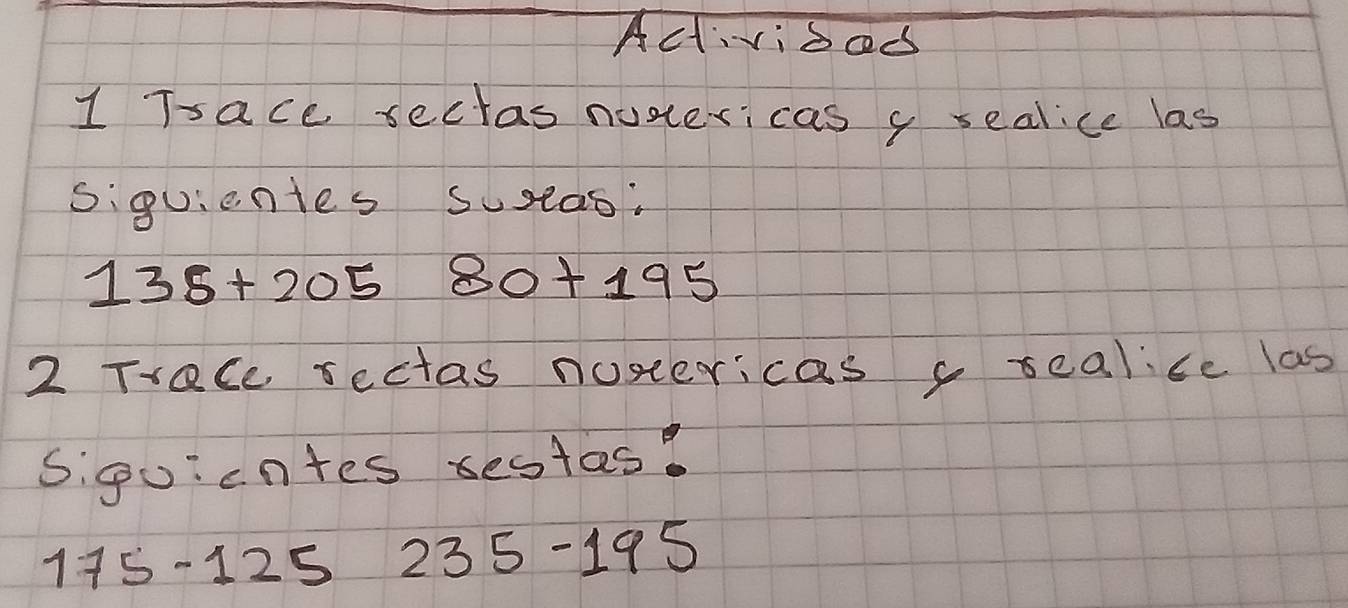 Actividad
1 Trace rectas numericas y realice las
siguientes sumas:
135+205 80+195
2 Trace rectas numericas y realice las
siguientes restas:
175-125 235-195